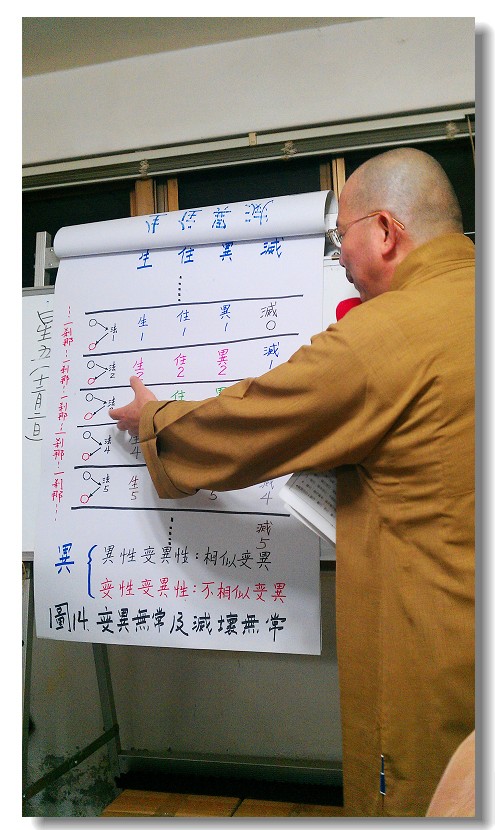 生 住 異 滅
法1 生1 住1 異1 滅0
法2 生2 住2 異2 滅1
法 住
法4 生4
法5 生5 5 滅4
滅5
一剎那 一剎那 一剎那 一剎那 一剎那
星五(十二月二日)
異 異性变異性：相似变異
变性变異性：不相似变異
圖14. 变異無常及滅壞無常